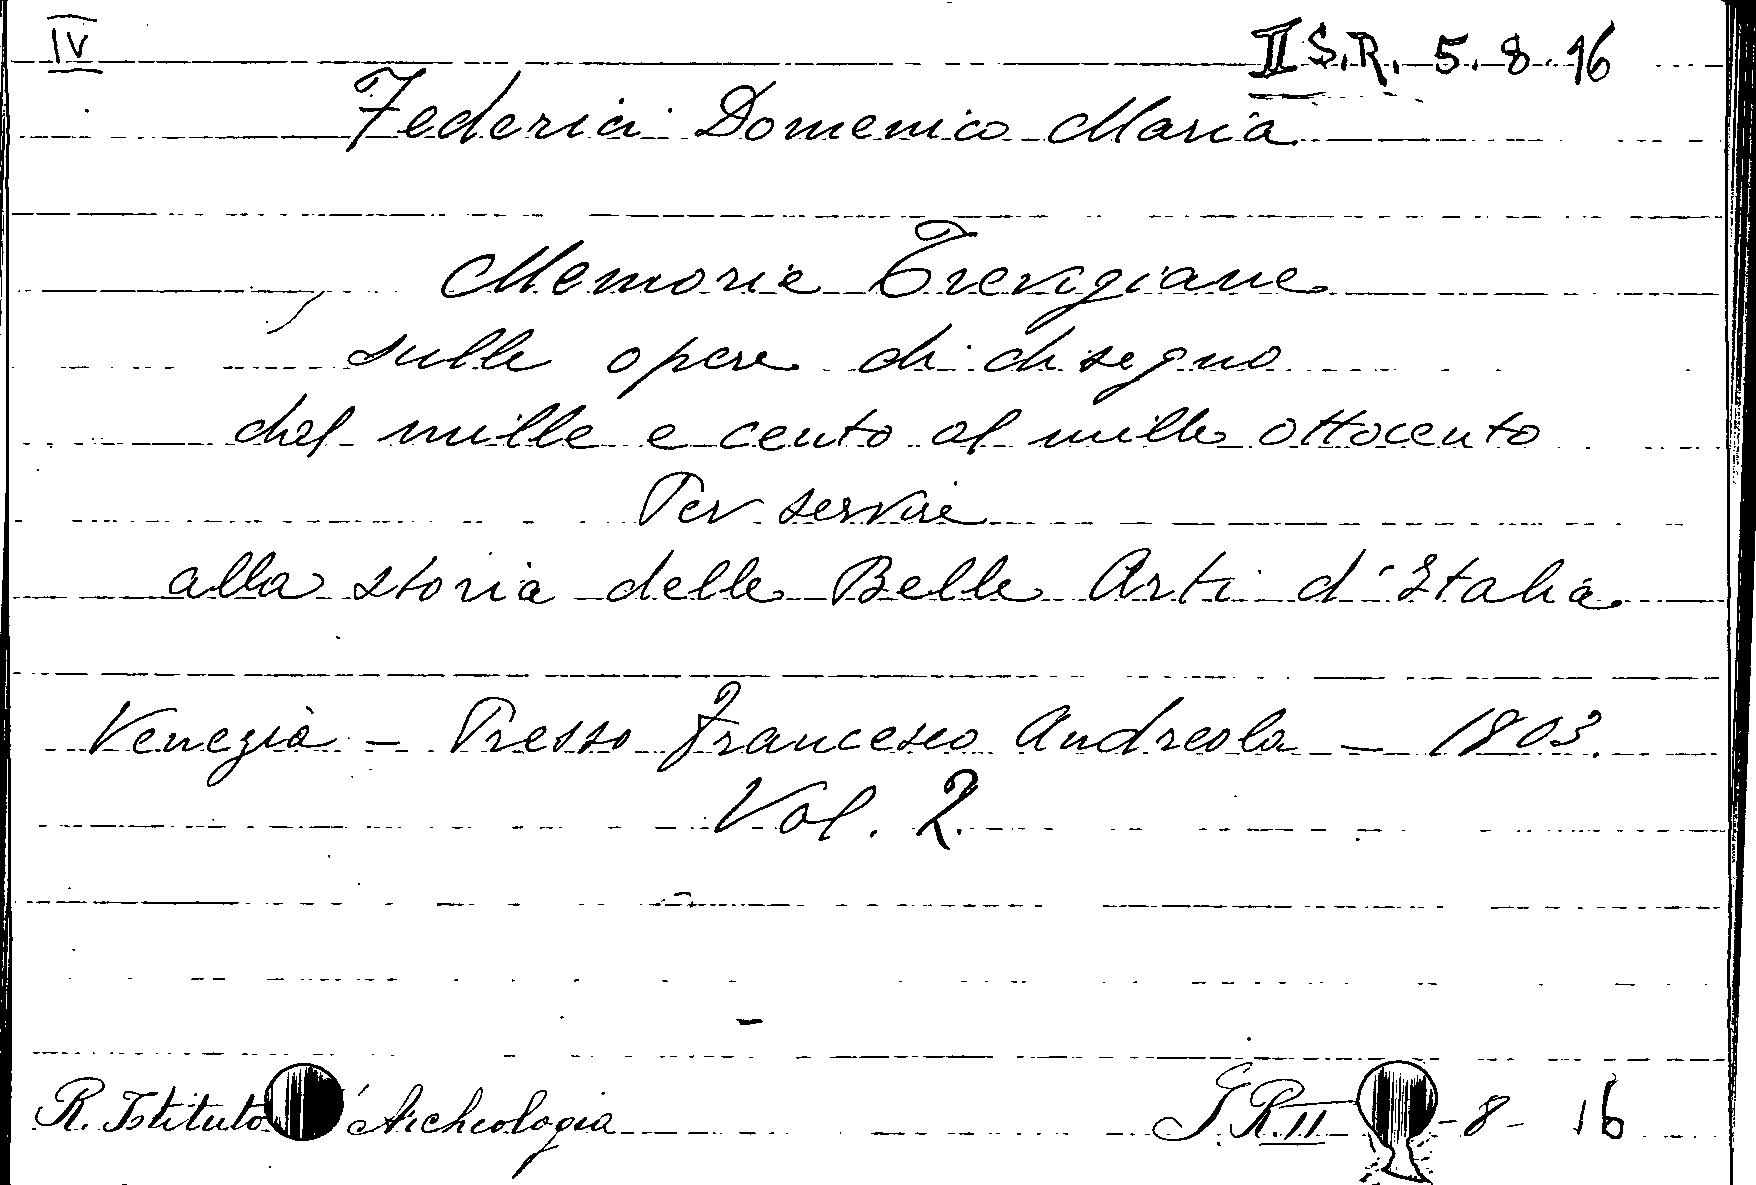 IV
II S.R. 5.8.16
Federici Domenico Maria
Memorie Trevigiane
sulle opere di disegno
del mille e cento al mille ottocento
Per servire
alla storia delle Belle Arti d'Italia
Venezia - Presso Francesco Andreola - 1803.
Vol. 2
R. Istituto Archeologia
S.R. II -8- 16